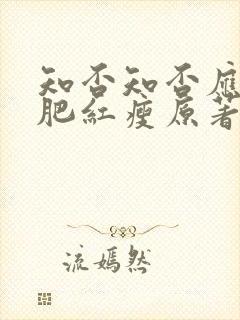 知否知否應
肥紅瘦原著
流嫣然